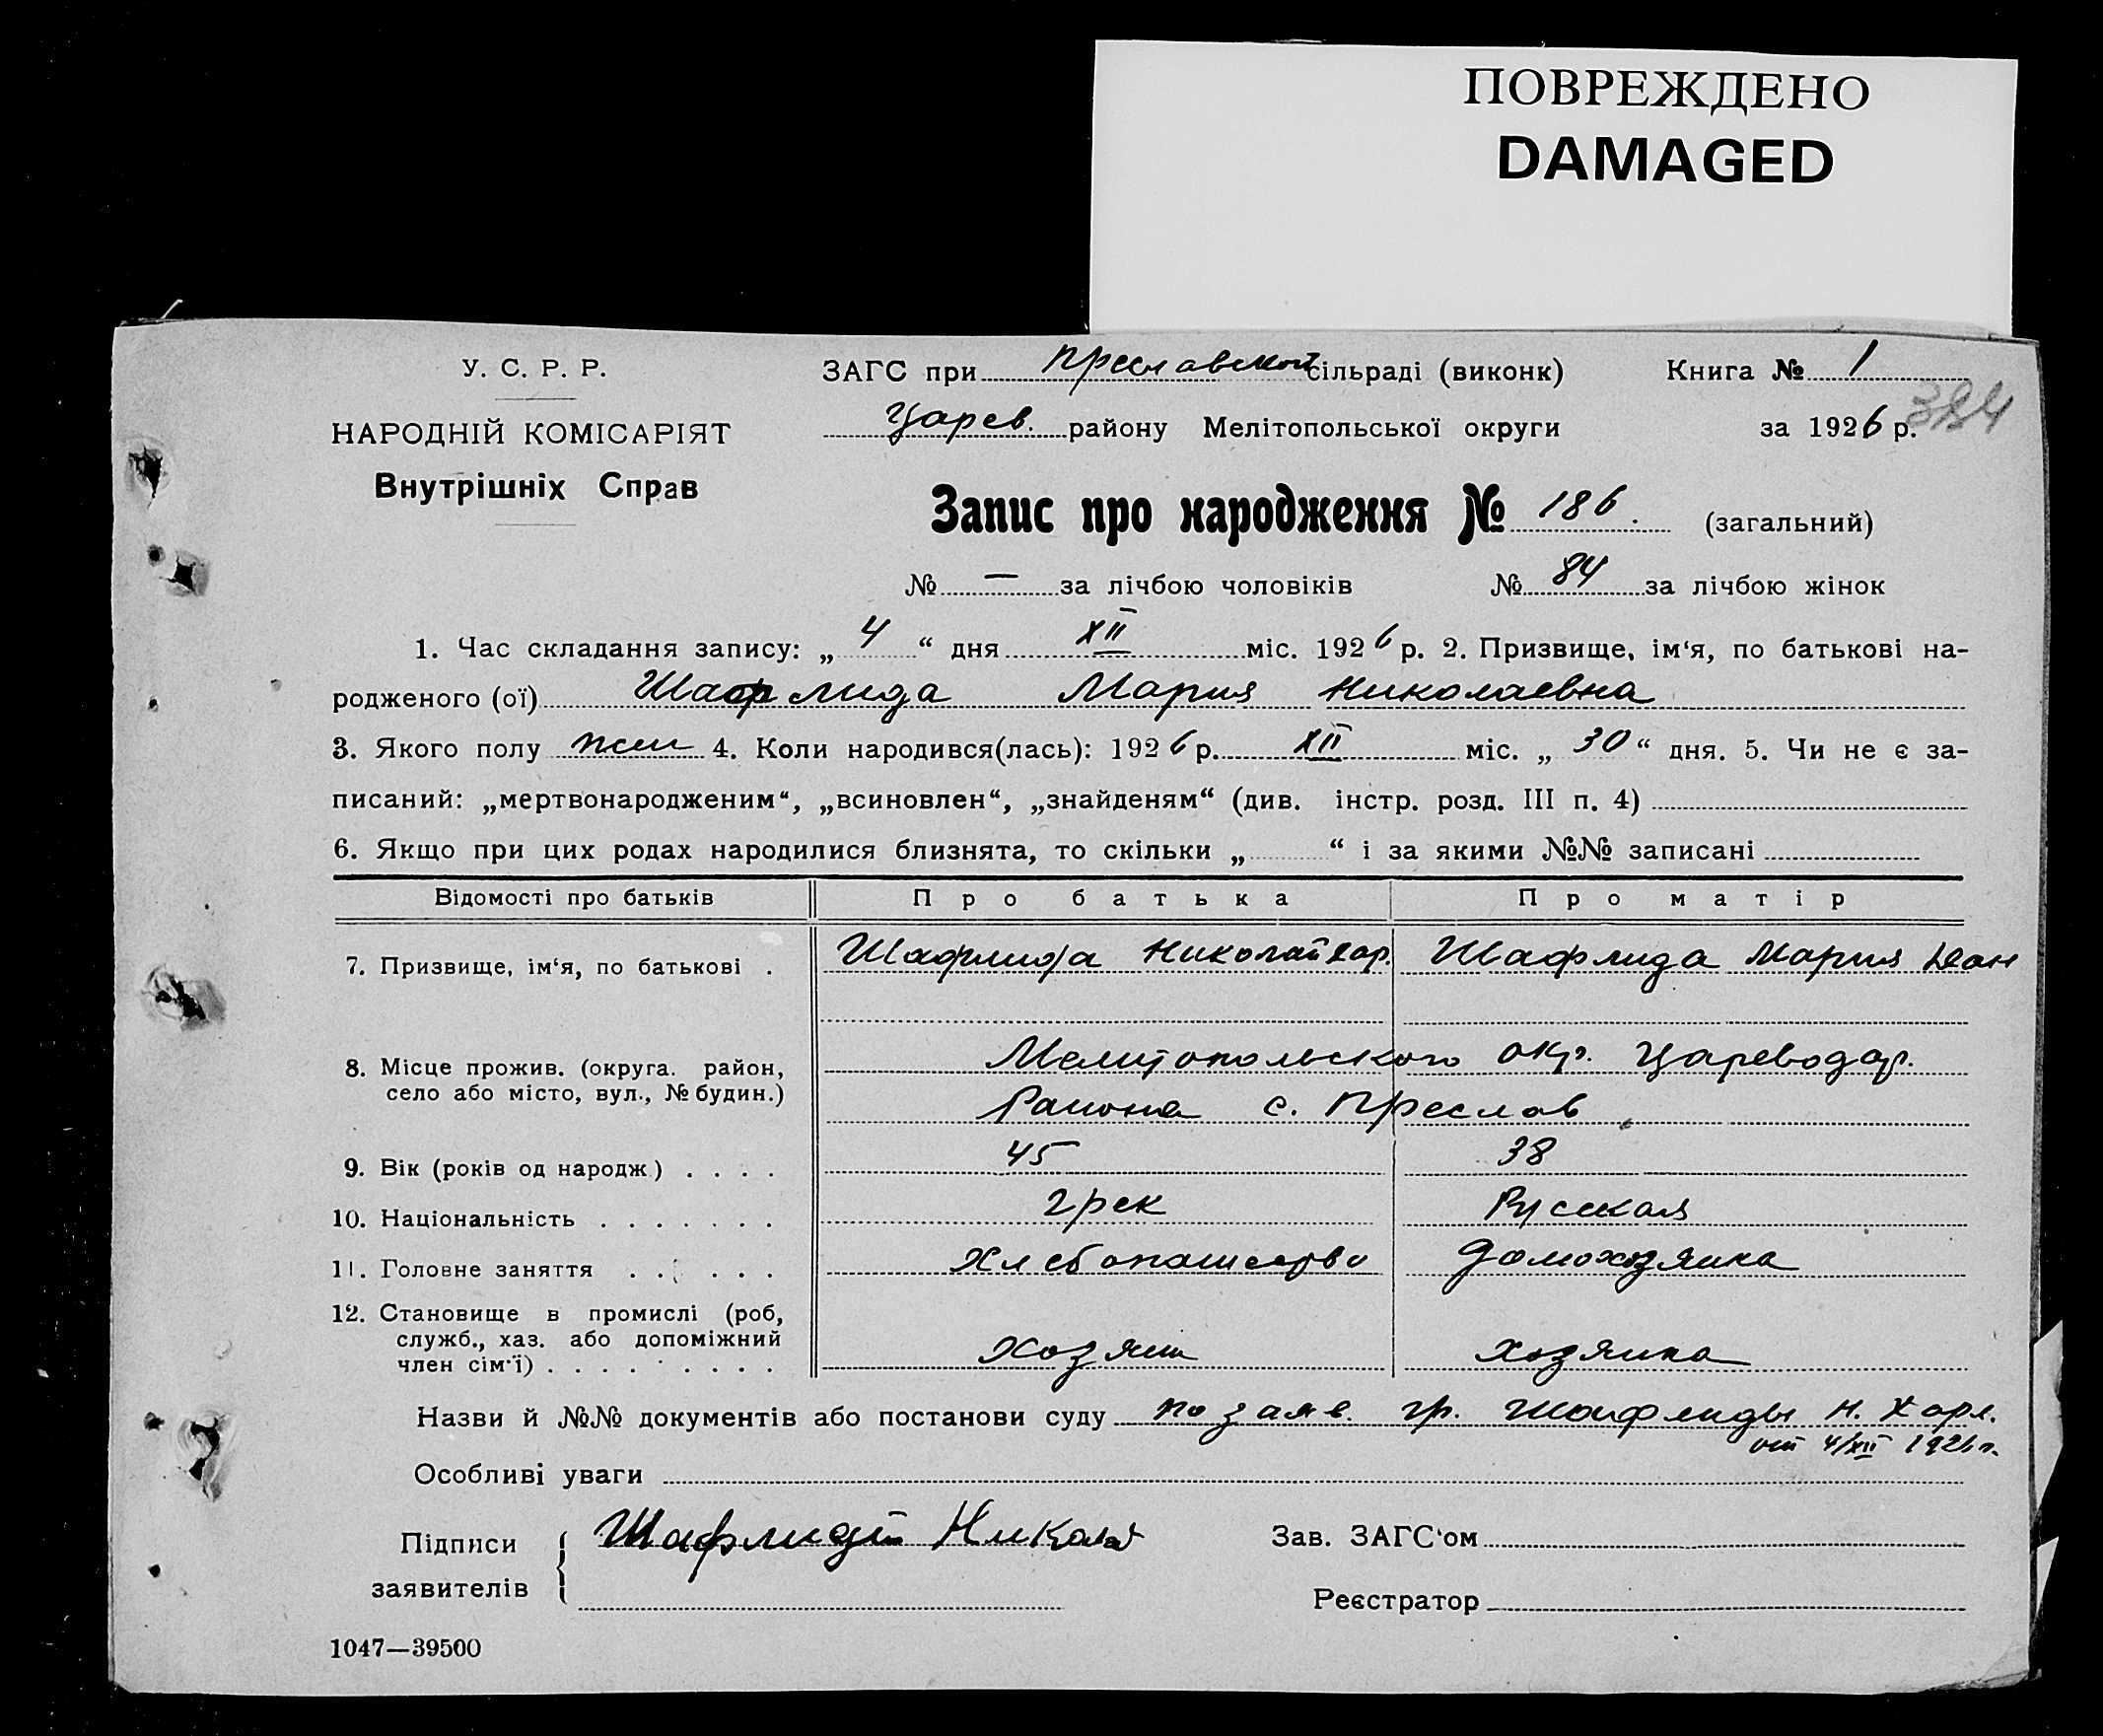 ПОВРЕЖДЕНО
DAMAGED
У. С. Р. Р.
НАРОДНІЙ КОМІСАРІЯТ
Внутрішніх Справ
ЗАГС при Преславской сільраді (виконк) Книга № 1
384
Царев. району Мелітопольської округи за 1926 р.
Запис про народження № 186. (загальний)
№ — за лічбою чоловіків № 84 за лічбою жінок
1. Час складання запису: „ 4 “ дня XII міс. 1926 р. 2. Призвище, ім‘я, по батькові на-
родженого (ої) Шафлида Мария Николаевна
3. Якого полу жен 4. Коли народився(лась): 1926 р. XII міс. „ 30 “ дня. 5. Чи не є за-
писаний: „мертвонародженим“, „всиновлен“, „знайденям“ (див. інстр. розд. III п. 4)
6. Якщо при цих родах народилися близнята, то скільки „ “ і за якими №№ записані
Відомості про батьків Про батька Про матір
7. Призвище, ім‘я, по батькові . Шафлида Николай Хар. Шафлида Мария
8. Місце прожив. (округа. район, село або місто, вул., № будин.) Мелитопольского окр. Цареводар.
Района с. Преслав
9. Вік (років од народж.) . . . . 45 38
10. Національність . . . . . . . грек Русская
11. Головне заняття . . . . . . Хлебопашество домохозяйка
12. Становище в промислі (роб,
служб., хаз. або допоміжний
член сім‘ї) . . . . . . . . . хозяин хозяйка
Назви й №№ документів або постанови суду по заяв. гр. Шафлиды Н. Харл.
от 4/XII 1926 г.
Особливі уваги
Підписи
заявителів
Шафлиди Николай
Зав. ЗАГС‘ом
Реєстратор
1047—39500